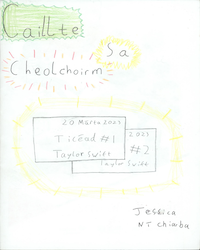 Caillte
Sa
Cheolchoirm
20 Márta 2023
Ticéad #1
Taylor Swift
2023
#2
Taylor Swift
Jessica
Ní Chiarba